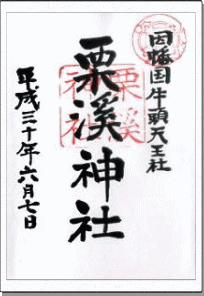 因幡国牛頭天王社
栗溪神社
平成三十年六月七日